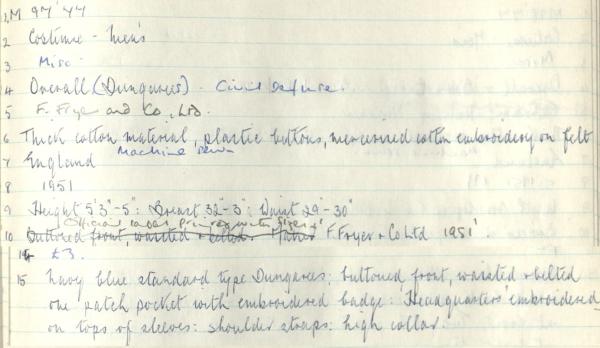 1, M 97'44
2 Costume - Men's
3 Misc -
4 Overall (Dungarees) - Civil Defence.
5 F. Fryer and Co. Ltd.
6 Thick cotton material, plastic buttons, mercerised cotton embroidery on felt
Machine sewn
7 England
8 1951
9 Height 5'3"-5": Breast 32"-3": Waist 29"-30"
Official label
10 Buttoned front, waisted & belted. F Fryer & Co Ltd 1951'
14 £3.
15 Navy blue standard type Dungarees: buttoned front, waisted & belted
one patch pocket with embroidered badge: 'Headquarters' embroidered
on tops of sleeves: shoulder straps: high collar